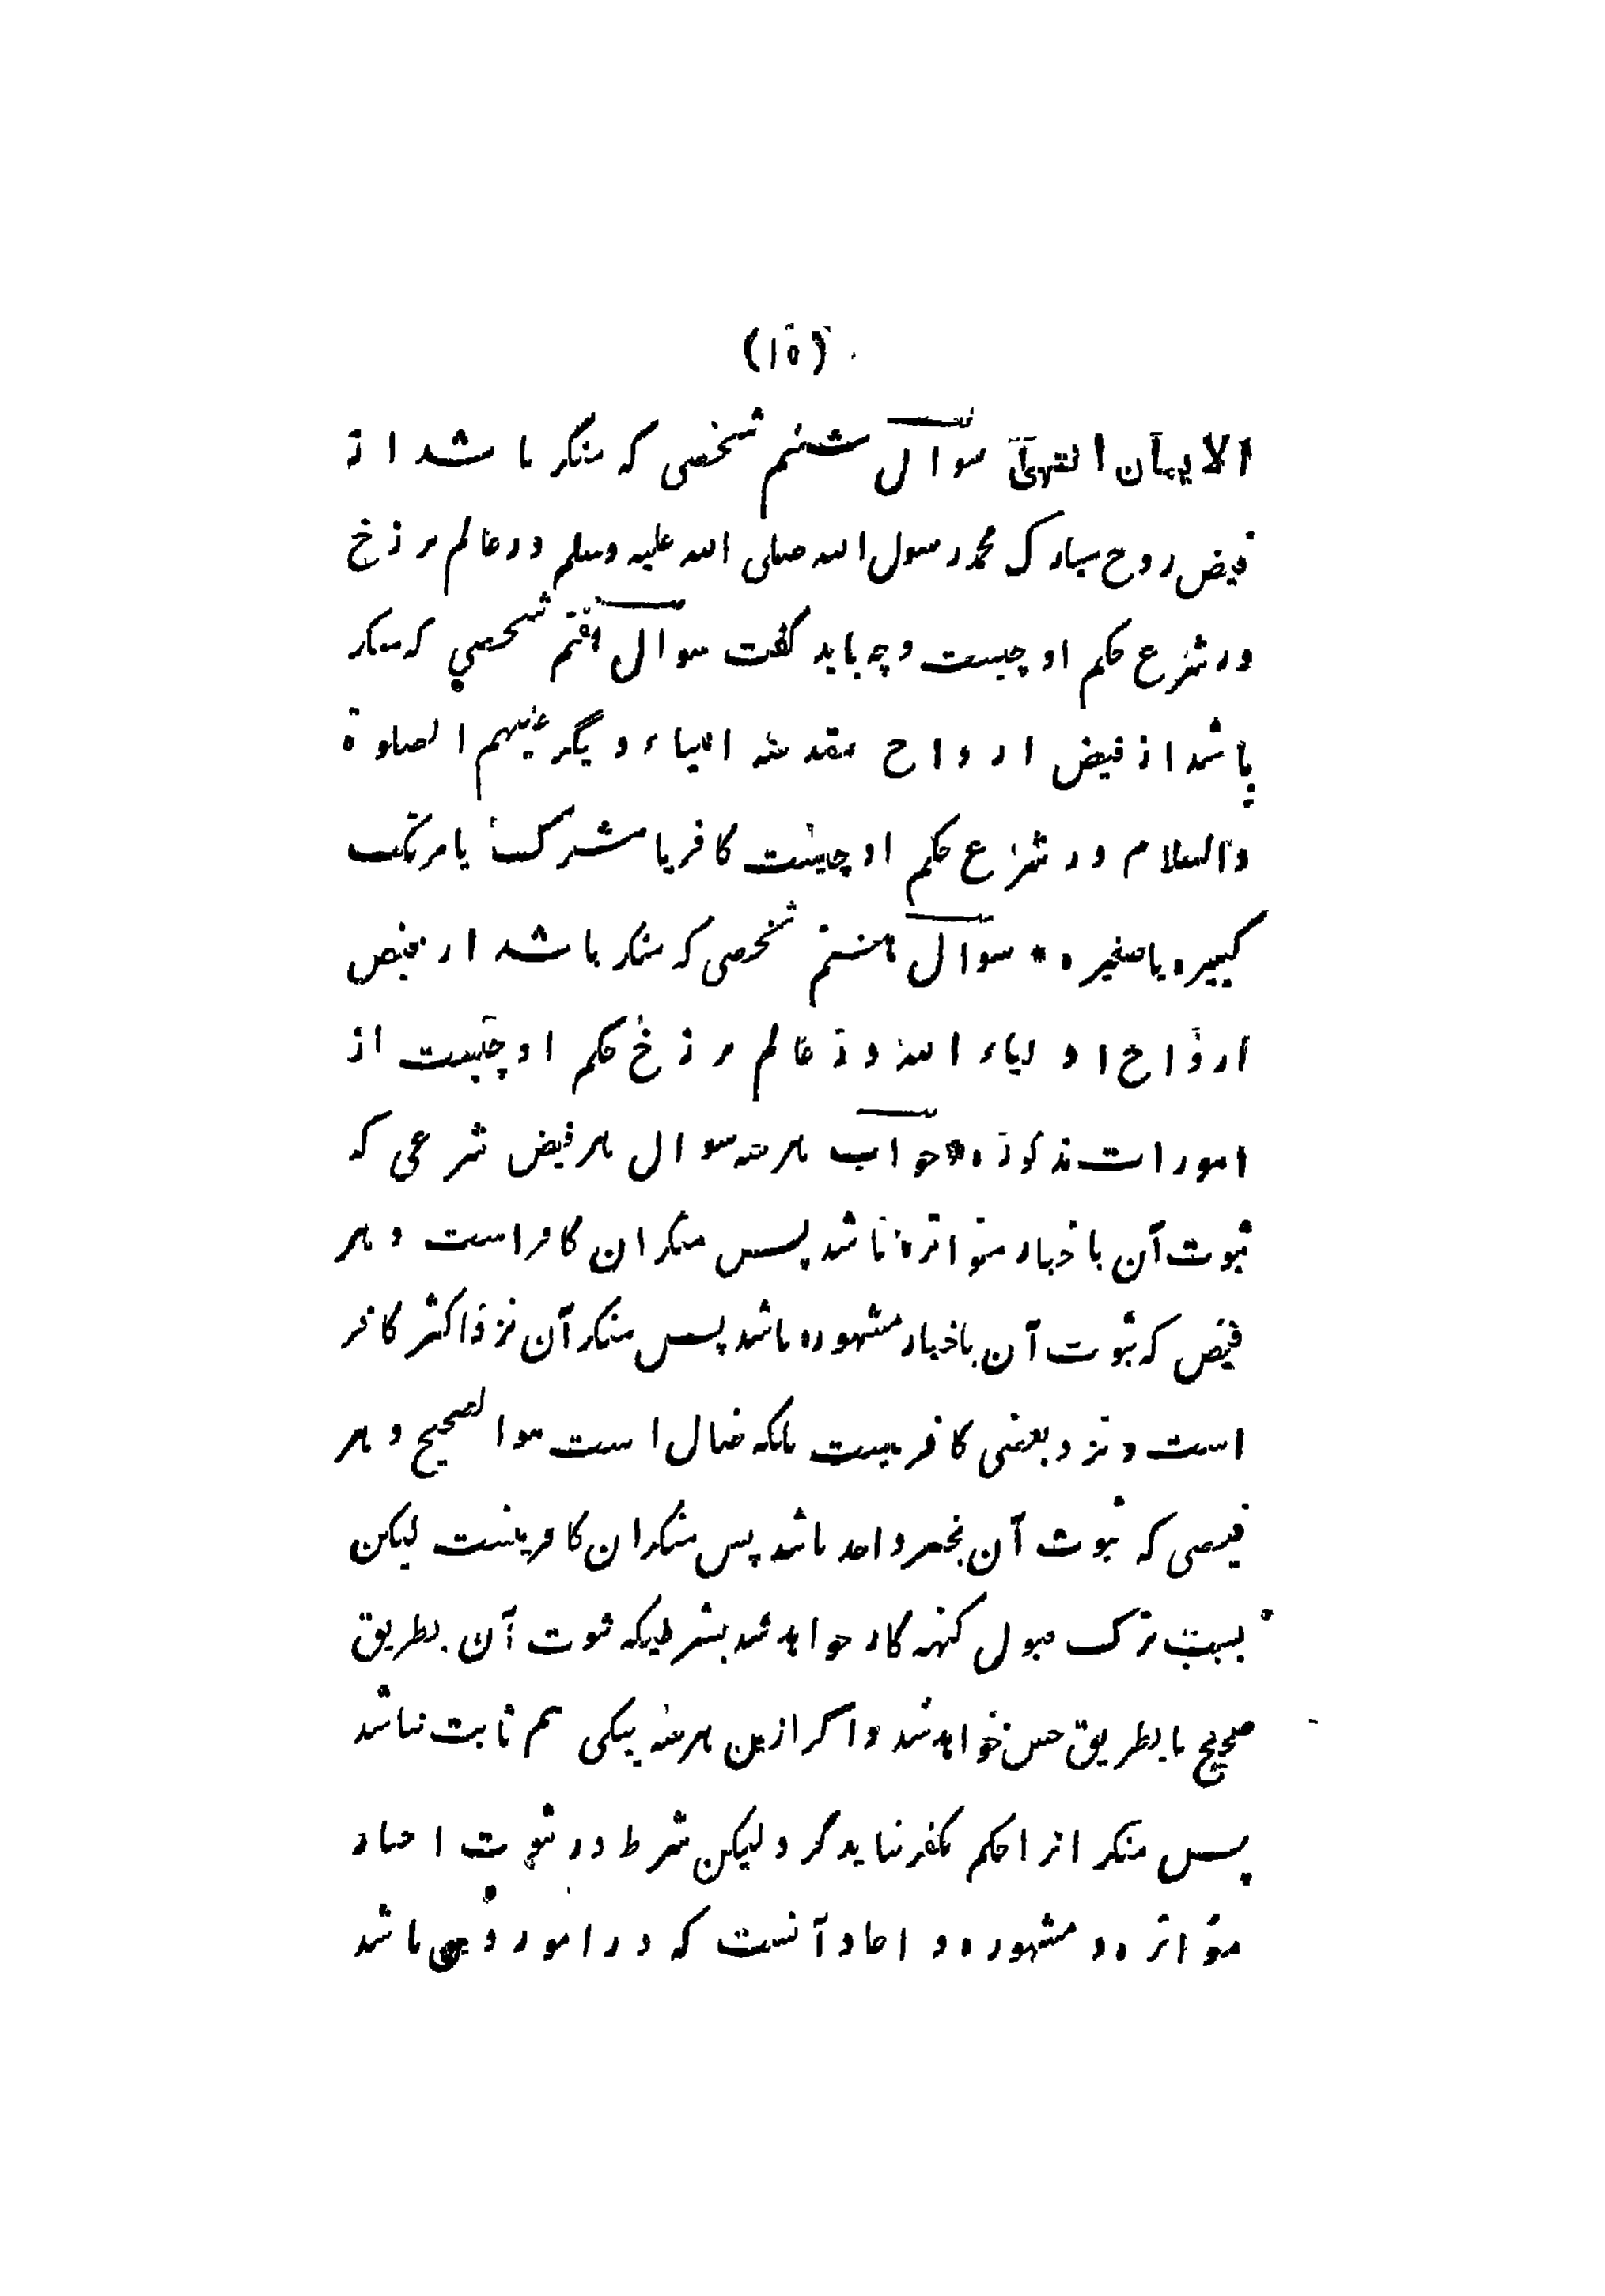 (۱۵)
الایمان انتهیٰ سوال ششم شخصی که منکر باشد از
فیض روح مبارک محمد رسول الله صلی الله علیه وسلم در عالم برزخ
در شرع حکم او چیست و چه باید گفت سوال هفتم شخصی که منکر
باشد از فیض ارواح مقدسه انبیاء دیگر علیهم الصلوة
والسلام در شرع حکم او چیست کافر یا مشرک یا مرتکب
کبیره یا صغیره * سوال هشتم شخصی که منکر باشد از فیض
ارواح اولیاء الله در عالم برزخ حکم او چیست از
امورات مذکوره * جواب هر سه سوال هر فیض شرعی که
ثبوت آن باخبار متواتره باشد پس منکر ان کافر است و هر
فیض که ثبوت آن باخبار مشهوره باشد پس منکر آن نزد اکثر کافر
است و نزد بعضی کافر نیست بلکه ضال است هو الصحیح و هر
فیضی که ثبوت آن بخبر واحد باشد پس منکر ان کافر نیست لیکن
بسبب ترک قبول گنه گار خواهد شد بشرطیکه ثبوت آن بطریق
صحیح یا بطریق حسن خواهد شد و اگر ازین هر سه بیکی هم ثابت نباشد
پس منکر انرا حکم کفر نباید کرد لیکن شرط در ثبوت اخبار
متواتره و مشهوره و احاد آنست که در امور دینی باشد